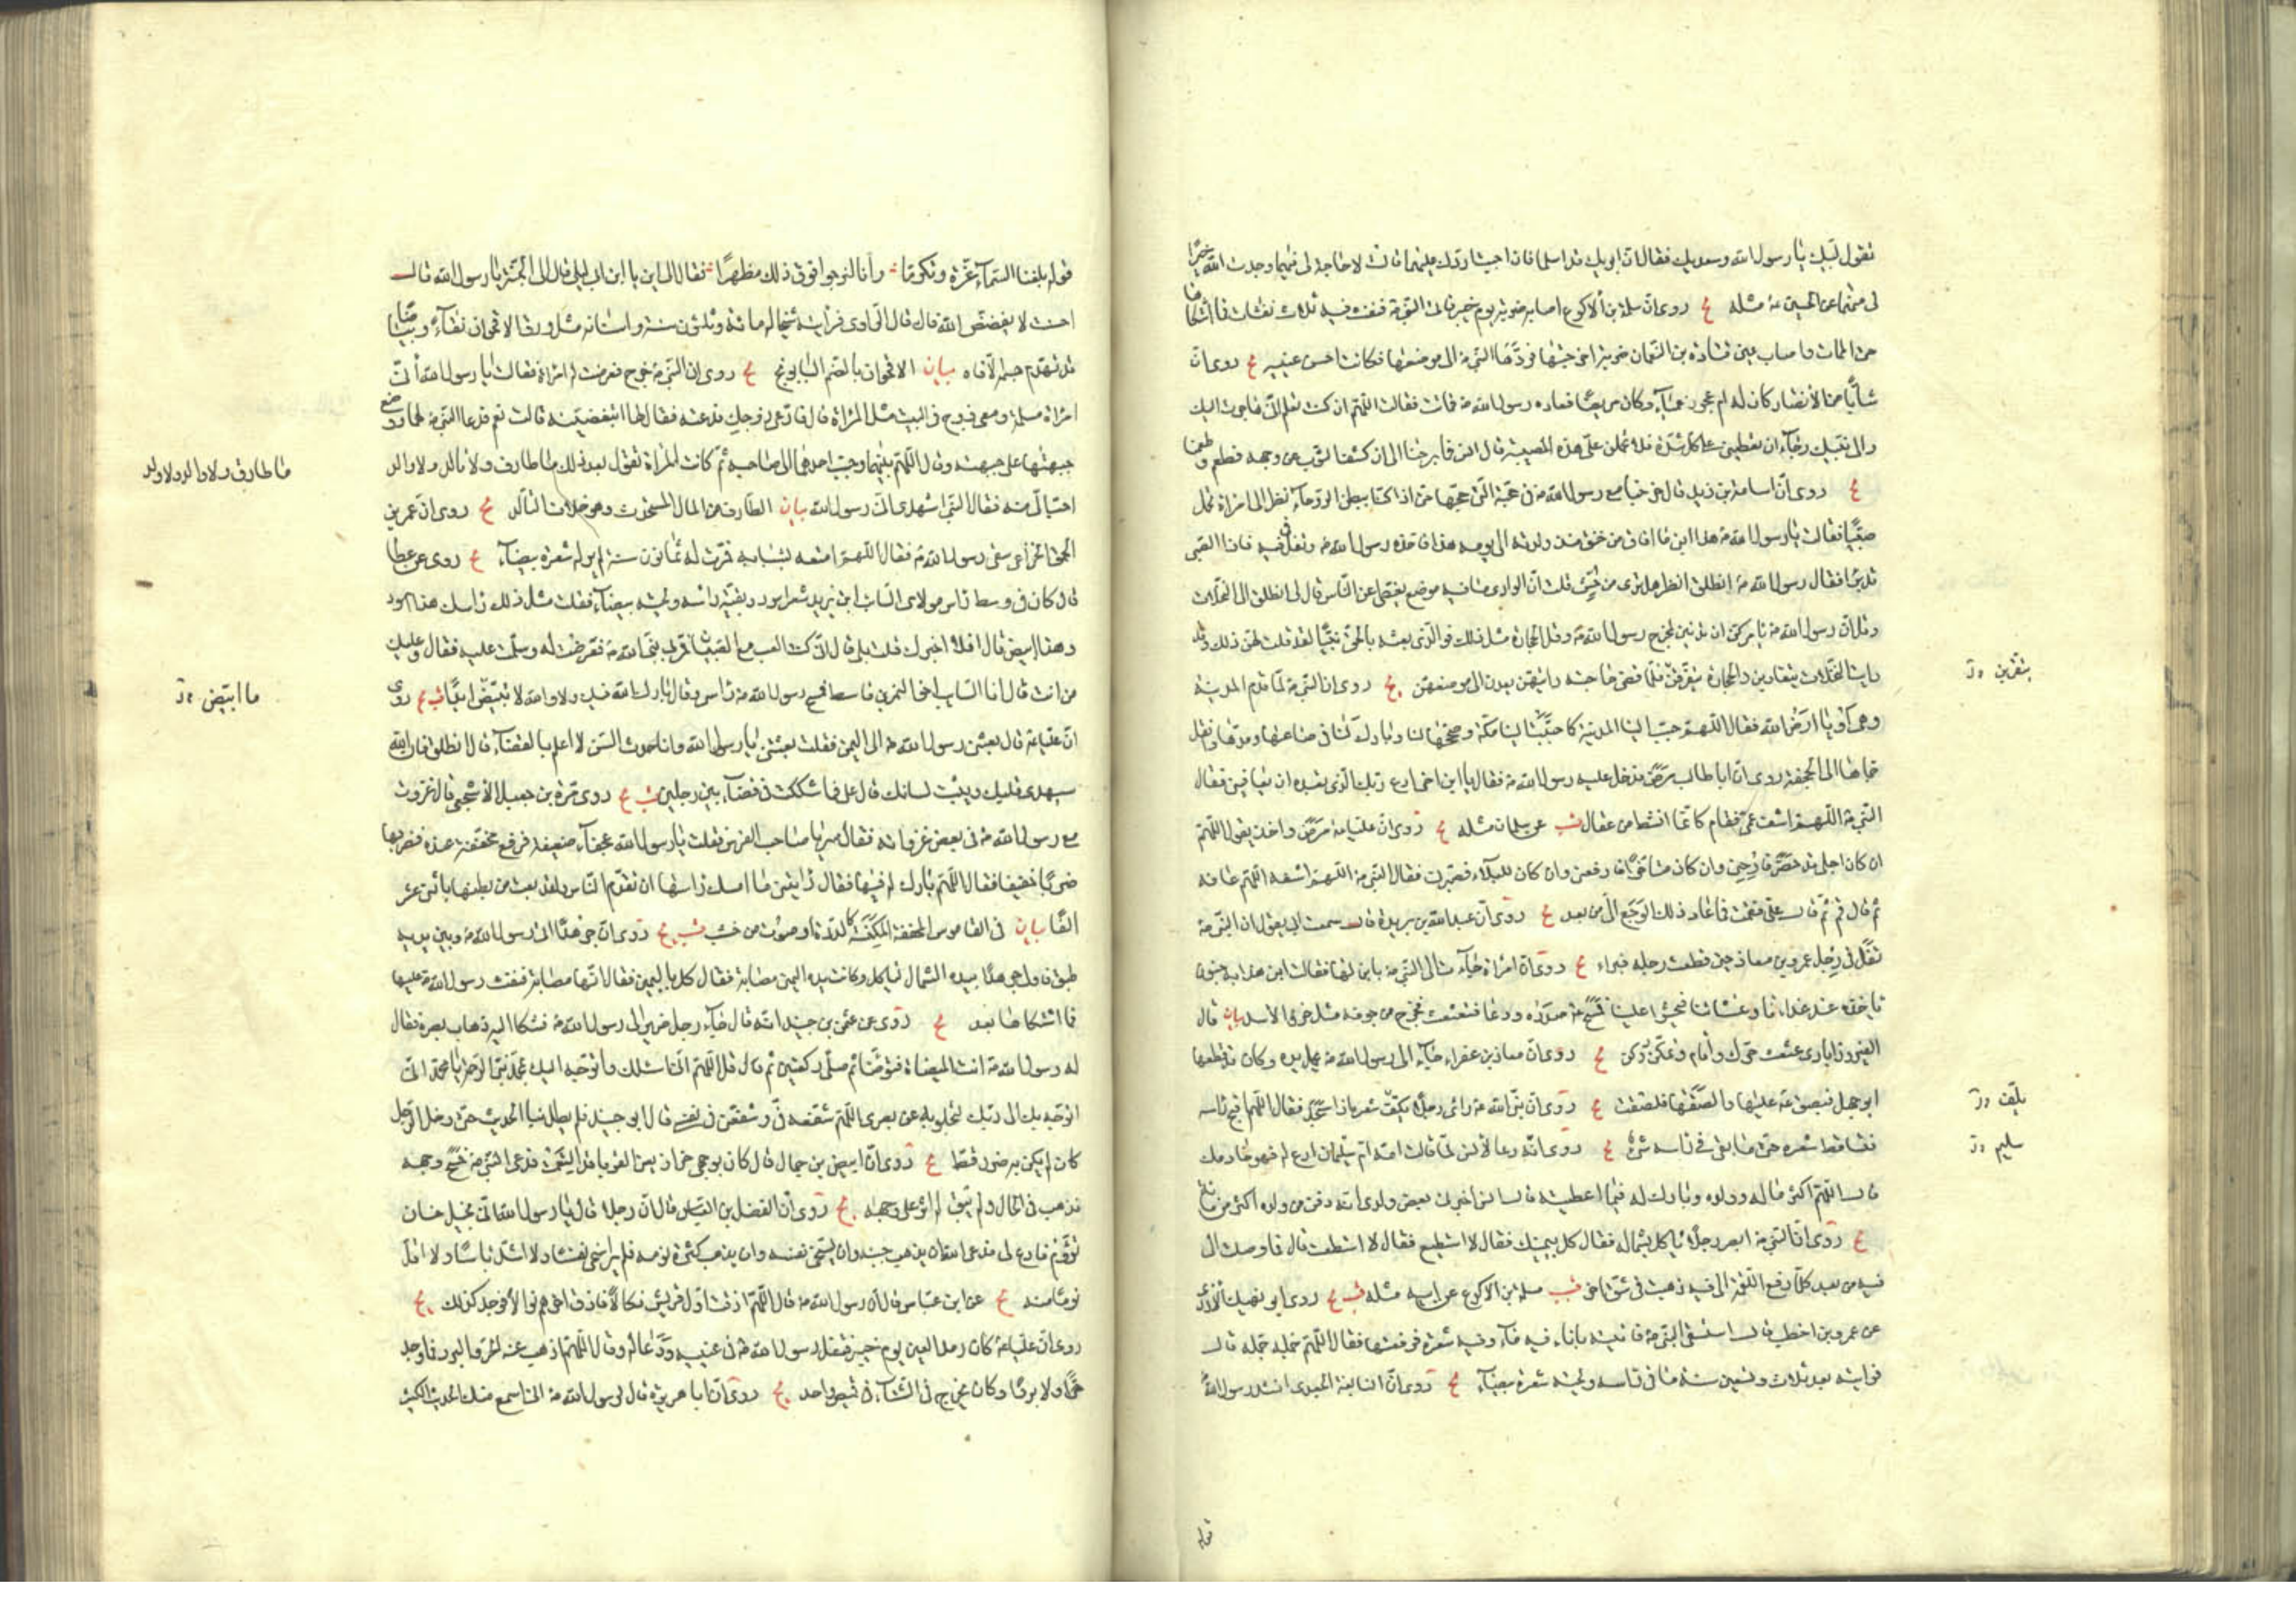 تقول لبيك يا رسول الله وسعديك فقال ان ابويك قد اسلما فان احببت ان اردك عليهما قالت لا حاجة لي فيهما وجدت الله خيرا
لي منهما عن الحسين ع مثله يج روي ان سلمة بن الاكوع اصابه ضربة يوم خيبر فاتى النبي ص فنفث فيه ثلاث نفثات فما اشتكاها
حتى الممات واصاب عين قتادة بن النعمان ضربة اخرجتها فردها النبي ص الى موضعها فكانت احسن عينيه يج روي ان
شابا من الأنصار كان له ام عجوز عمياء وكان مريضا فعاده رسول الله ص فمات فقالت اللهم ان كنت تعلم اني هاجرت اليك
والى نبيك رجاء ان تعينني على كل شدة فلا تحملن علي هذه المصيبة قال انس فما برحنا الى ان كشف الثوب عن وجهه فطعم وطعمنا
يج روي ان اسامة بن زيد قال خرجنا مع رسول الله ص في حجته التي حجها حتى اذا كنا ببطن الروحاء نظر الى امراة تحمل
صبيا فقالت يا رسول الله ص هذا ابني ما افاق من خنق منذ ولدته الى يومه هذا فاخذه رسول الله ص وتفل في فيه فاذا الصبي
قد برأ فقال رسول الله ص انطلق انظر هل ترى من حش قلت ان الوادي ما فيه موضع يغطي عن الناس قال لي انطلق الى النخلات
وقل ان رسول الله ص يامركن ان تدنين لمخرج رسول الله ص وقل للحجارة مثل ذلك فوالذي بعثه بالحق نبيا لقد قلت لهن ذلك وقد
رايت النخلات يتقاربن والحجارة يتفرقن فلما قضى حاجته رايتهن يعدن الى موضعهن يج روي ان النبي ص لما قدم المدينة
وهي اوبا ارض الله فقال اللهم حبب الينا المدينة كما حببت الينا مكة وصححها لنا وبارك لنا في صاعها ومدها وانقل
حماها الى الجحفة روي ان ابا طالب مرض فدخل عليه رسول الله ص فقال يا ابن اخي ادع ربك الذي تعبده ان يعافيني فقال
النبي ص اللهم اشف عمي فقام كانما انشط من عقال قب عن سلمان مثله يج روي ان عليا ع مرض واخذ يقول اللهم
ان كان اجلي قد حضر فارحني وان كان متاخرا فارفعني وان كان للبلاء فصبرني فقال النبي ص اللهم اشفه اللهم عافه
ثم قال قم قال علي فقمت فما عاد ذلك الوجع الي من بعد يج روي ان عبد الله بن بريدة قال سمعت ابي يقول ان النبي ص
تفل في رجل عمرو بن معاذ حين قطعت رجله فبراء يج روي ان امراة جاءت الى النبي ص بابن لها فقالت ابني هذا به جنون
ياخذه عند غدائنا وعشائنا فيحثو علينا فمسح ص صدره ودعا فثعثع فخرج من جوفه مثل خرء الاسد بيان قال
الفيروزآبادي عثعث حرك واقام وتمكن وركن يج روي ان معاذ بن عفراء جاء الى رسول الله ص يحمل يده وكان قد قطعها
ابو جهل فبصق ص عليها والصقها فلصقت يج روي ان نبي الله ص راى رجلا يكفت شعره اذا سجد فقال اللهم اقبح راسه
فتساقط شعره حتى ما بقي في راسه شئ يج روي انه دعا لأنس لما قالت امه ام سليمان ادع له فهو خادمك
قال اللهم اكثر ماله وولده وبارك له فيما اعطيته قال انس اخبرني بعض ولدي انه دفن من ولده اكثر من مائة
يج روي ان النبي ص ابصر رجلا ياكل بشماله فقال كل بيمينك فقال لا استطيع فقال لا استطعت قال فما وصلت الى
فيه من بعد كلما رفع اللقمة الى فيه ذهبت في شق اخر قب سلمة بن الاكوع عن ابيه مثله قب يج روي ابو نهيك الازدي
عن عمرو بن اخطب قال استسقى النبي ص فاتيته باناء فيه ماء وفيه شعرة فرفعتها فقال اللهم جمله جمله قال
فرايته بعد ثلاث وتسعين سنة ما في راسه ولحيته شعرة بيضاء يج روي ان النابغة الجعدي انشد رسول الله ص
قوله
يتفرقن ل
يلفت ل
سليم ل
قوله بلغنا السماء عزة وتكرما وأنا لنرجو فوق ذلك مظهرا فقال الى اين يا ابن ابي ليلى قال الى الجنة يا رسول الله قال
احسنت لا يفضض الله فاك قال الراوي فرايته شيخا له مائة وثلثون سنة واسنانه مثل ورق الاقحوان نقاء وبياضا
قد تهدم جسمه الا فاه بيان الاقحوان بالضم البابونج يج روي ان النبي ص خرج فعرضت له امراة فقالت يا رسول الله أني
امراة مسلمة ومعي زوج في البيت مثل المراة قال فادعي زوجك فدعته فقال لها اتبغضينه قالت نعم فدعا النبي ص لهما ووضع
جبهتها على جبهته وقال اللهم الف بينهما وحبب احدهما الى صاحبه ثم كانت المراة تقول بعد ذلك ما طارف ولا تالد ولا والد
احب الي منه فقال النبي اشهدي اني رسول الله بيان الطارف من المال المستحدث وهو خلاف التالد يج روي ان عمرو بن
الحمق الخزاعي سقى رسول الله ص فقال اللهم امتعه بشبابه فمرت له ثمانون سنة لم ير له شعرة بيضاء يج روي عن عطا
قال كان في وسط راس مولاي السائب ابن يزيد شعر اسود وبقية راسه ولحيته بيضاء فقلت مثل ذلك راسك هذا اسود
وهذا ابيض قال افلا اخبرك قلت بلى قال اني كنت العب مع الصبيان فمر بي نبي الله ص فعرضت له وسلمت عليه فقال وعليك
من انت قال انا السائب اخو النمر بن قاسط فمسح رسول الله ص راسي وقال بارك الله فيك ولا والله لا تبيض ابدا قب يج روي
ان عليا ع قال بعثني رسول الله ص الى اليمن فقلت بعثتني يا رسول الله وانا حدث السن لا اعلم بالقضاء قال انطلق فان الله
سيهدي قلبك ويثبت لسانك قال علي فما شككت في قضاء بين رجلين قب يج روي مرة بن جعيل الاشجعي قال غزوت
مع رسول الله ص في بعض غزواته فقال سر يا صاحب الفرس فقلت يا رسول الله عجفاء ضعيفة فرفع مخفقة عنده فضربها
ضربا خفيفا فقال اللهم بارك له فيها فقال رايتني ما امسك راسها ان تقدم الناس ولقد بعت من بطنها باثني عشر
الفا بيان في القاموس المخفقة كمكنسة الدرة او سوط من خشب قب يج روي ان جرهدا اتى رسول الله ص وبين يديه
طبق فاولى جرهد بيده الشمال لياكل وكانت يده اليمنى مصابة فقال كل باليمين فقال انها مصابة فنفث رسول الله ص عليها
فما اشتكاها بعد يج روي عن عثمن بن جنيد انه قال جاء رجل ضرير الى رسول الله ص فشكا اليه ذهاب بصره فقال
له رسول الله ص ائت الميضاة فتوضا ثم صل ركعتين ثم قال قل اللهم اني اسئلك واتوجه اليك بمحمد نبي الرحمة يا محمد اني
اتوجه بك الى ربك ليجلو به عن بصري اللهم شفعه في وشفعني في نفسي قال ابو جنيد فلم يطل بنا الحديث حتى دخل الرجل
كان لم يكن به ضرر قط يج روي ان ابيض بن حمال قال كان بوجهي حزاز يعني القوباء قد التمعت فدعى النبي ص فمسح وجهه
فذهب في الحال ولم يبق له اثر على وجهه يج روي ان الفضل بن العباس قال ان رجلا قال يا رسول الله اني بخيل جبان
نؤوم فادع لي فدعا الله ان يذهب جبنه وان يسخي نفسه وان يذهب كثرة نومه فلم ير اسخى نفسا ولا اشد باسا ولا اقل
نوما منه يج عن ابن عباس قال ان رسول الله ص قال اللهم اذقت اول قريش نكالا فاذق اخرهم نوالا فوجد كذلك يج
روي ان عليا ع كان رمد العين يوم خيبر فتفل رسول الله ص في عينيه ودعا له وقال اللهم اذهب عنه الحر والبرد فما وجد
حرا ولا بردا وكان يخرج في الشتاء في قميص واحد يج روي ان ابا هريرة قال لرسول الله ص اني اسمع منك الحديث الكثير
ما طارف ولا والد ولا ولد
ما ابيض ل